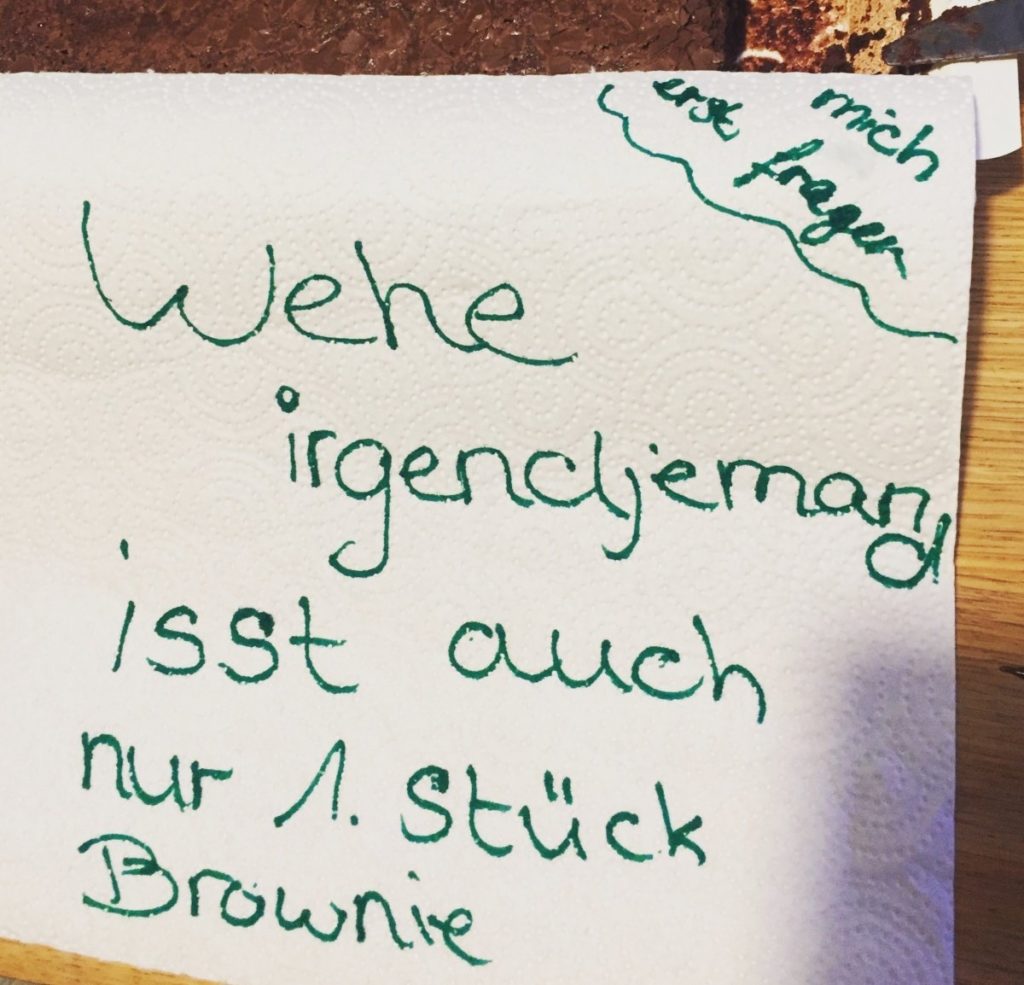 mich
erst fragen
Wehe
irgendjemand
isst auch
nur 1. Stück
Brownie